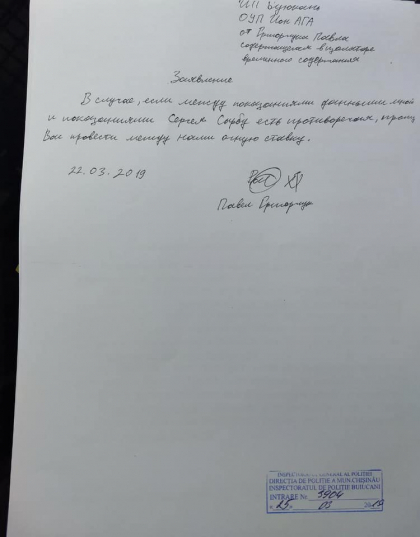 ИП Буюкань
ОУП Ион АГА
от Григорчук Павла
содержащегося в изоляторе
временного содержания
Заявление
В случае, если между показаниями данными мной
и показаниями Сергея Сырбу есть противоречия, прошу
Вас провести между нами очную ставку.
22.03.2019
Павел Григорчук
INSPECTORATUL GENERAL AL POLIȚIEI
DIRECȚIA DE POLIȚIE A MUN.CHIȘINĂU
INSPECTORATUL DE POLIȚIE BUIUCANI
INTRARE Nr. 3904
«25» 03 2019